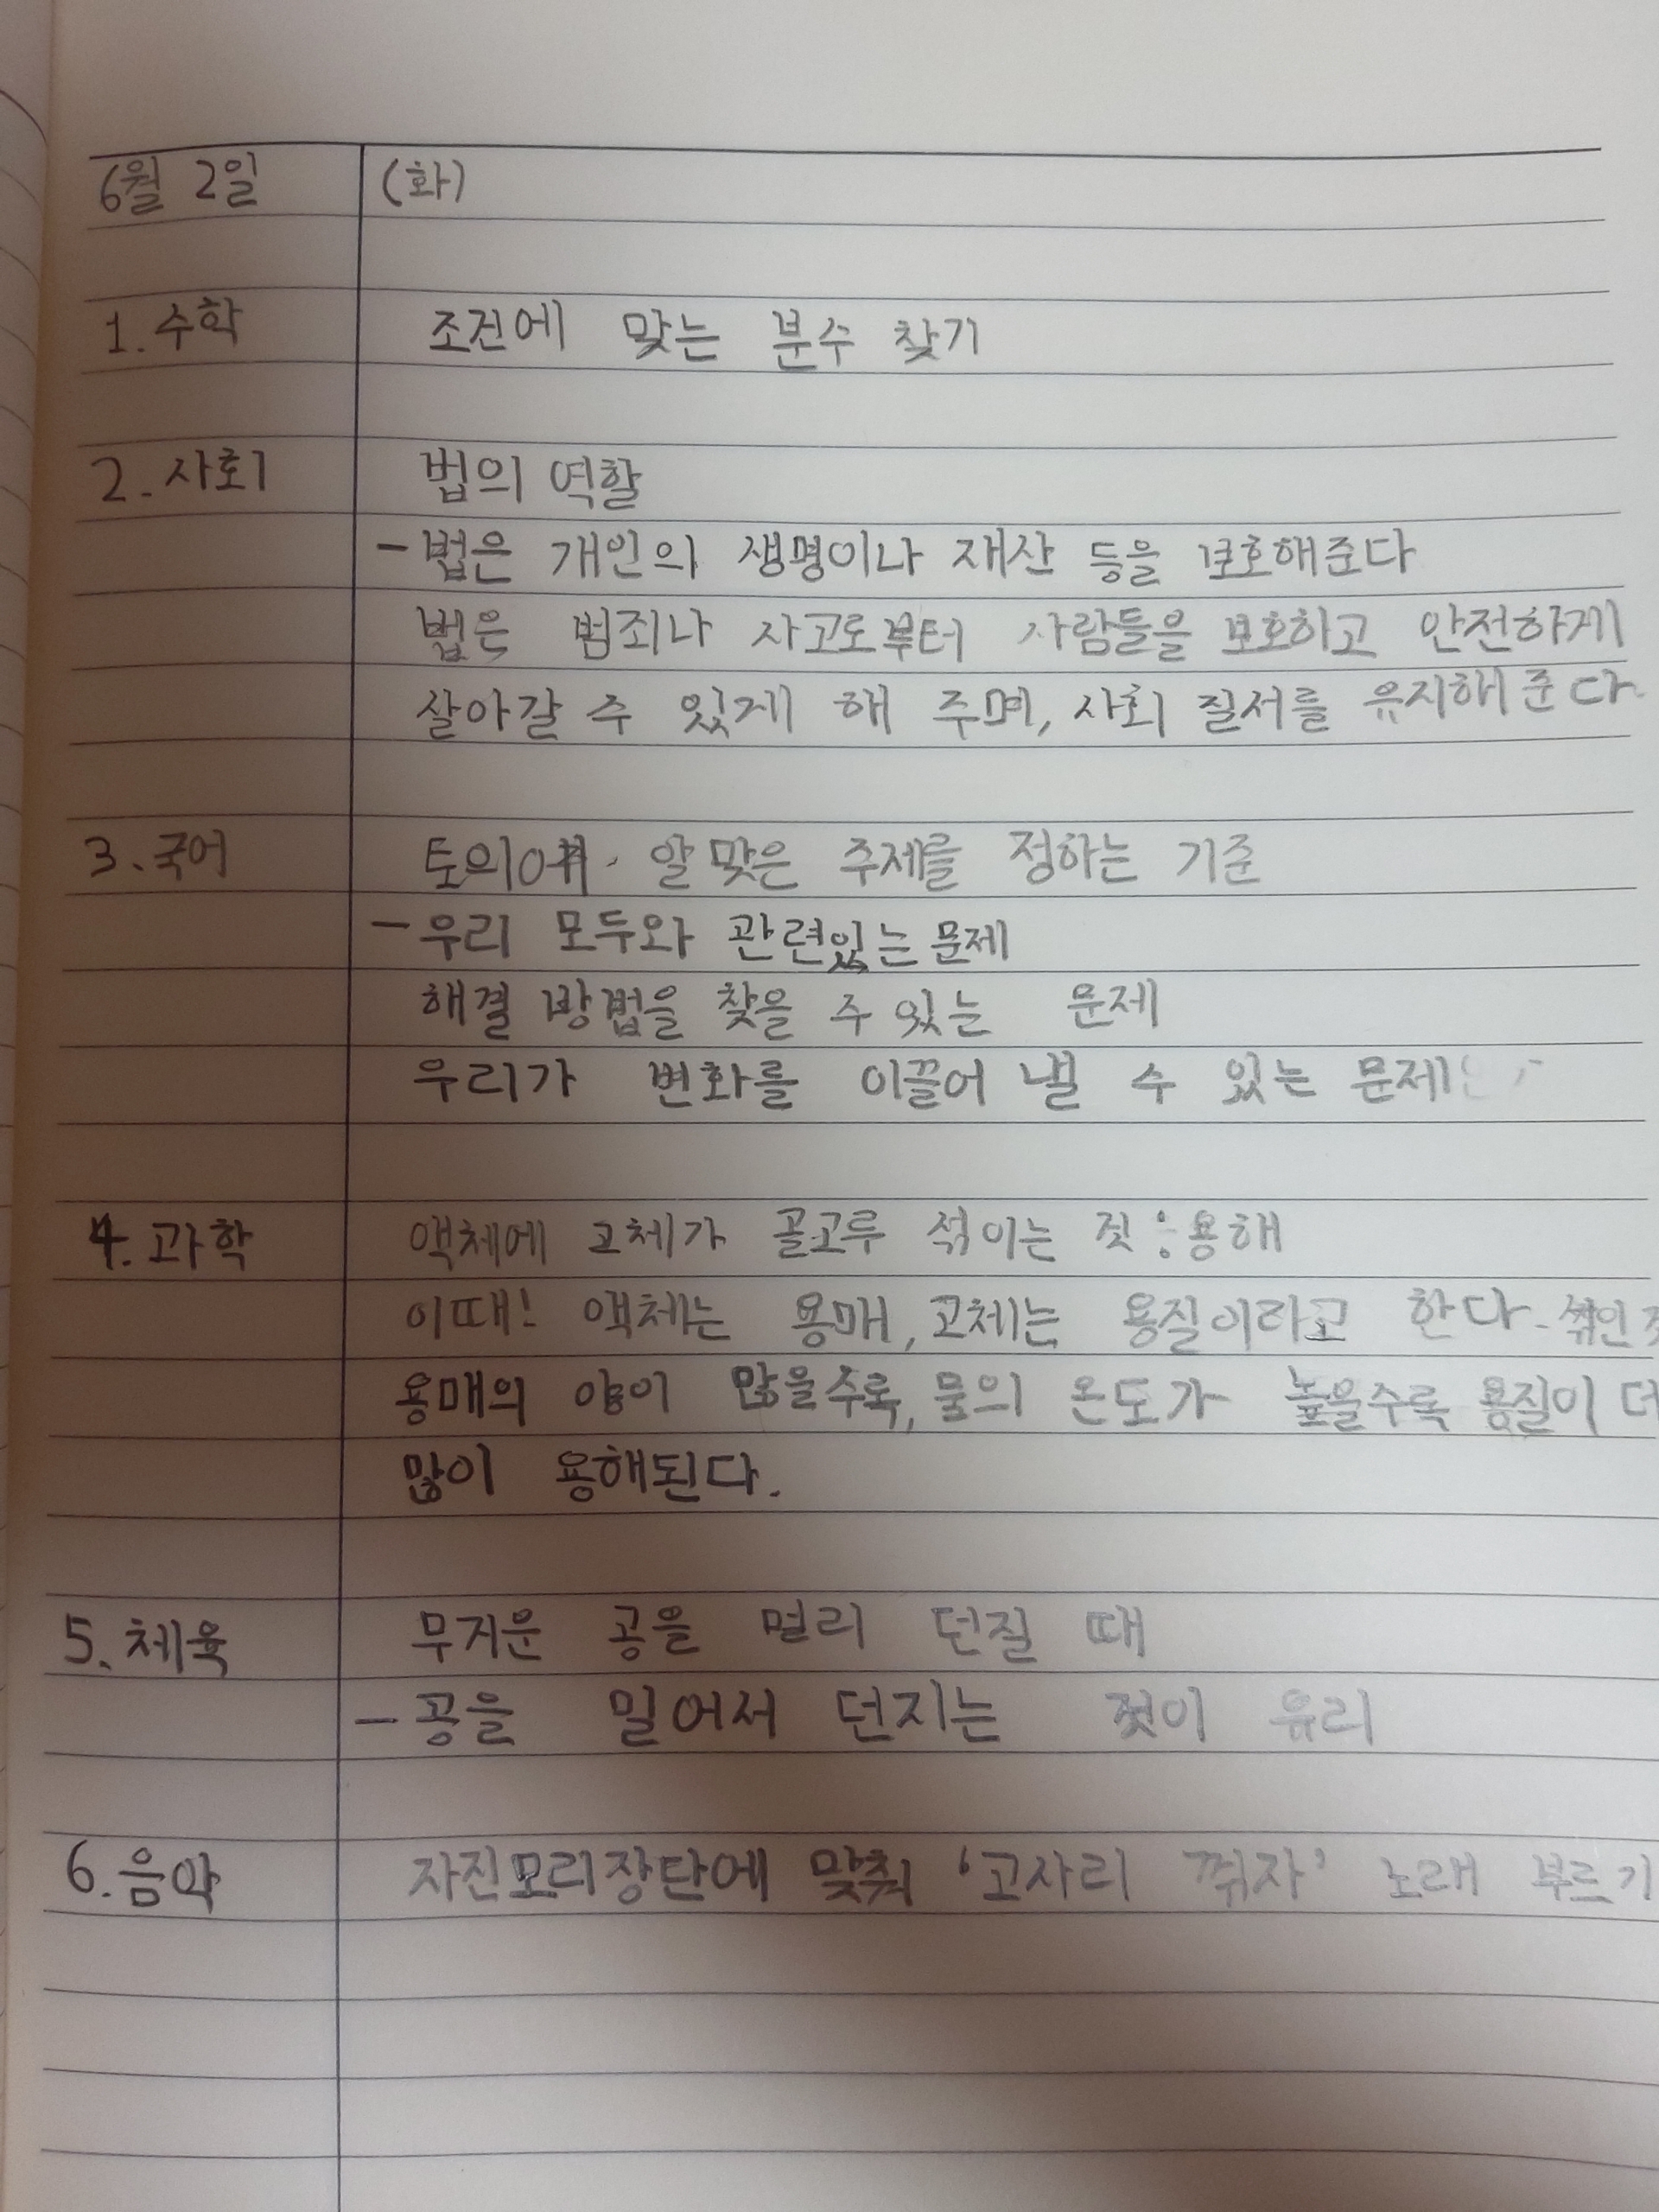 6월 2일 (화)
1. 수학 조건에 맞는 분수 찾기
2. 사회 법의 역할
- 법은 개인의 생명이나 재산 등을 보호해준다
법은 범죄나 사고로부터 사람들을 보호하고 안전하게
살아갈 수 있게 해 주며, 사회 질서를 유지해 준다.
3. 국어 토의에 알맞은 주제를 정하는 기준
- 우리 모두와 관련있는 문제
해결 방법을 찾을 수 있는 문제
우리가 변화를 이끌어 낼 수 있는 문제
4. 과학 액체에 고체가 골고루 섞이는 것 : 용해
이때! 액체는 용매, 고체는 용질이라고 한다. 섞인
용매의 양이 많을수록, 물의 온도가 높을수록 용질이 더
많이 용해된다.
5. 체육 무거운 공을 멀리 던질 때
- 공을 밀어서 던지는 것이 유리
6. 음악 자진모리장단에 맞춰 '고사리 꺾자' 노래 부르기